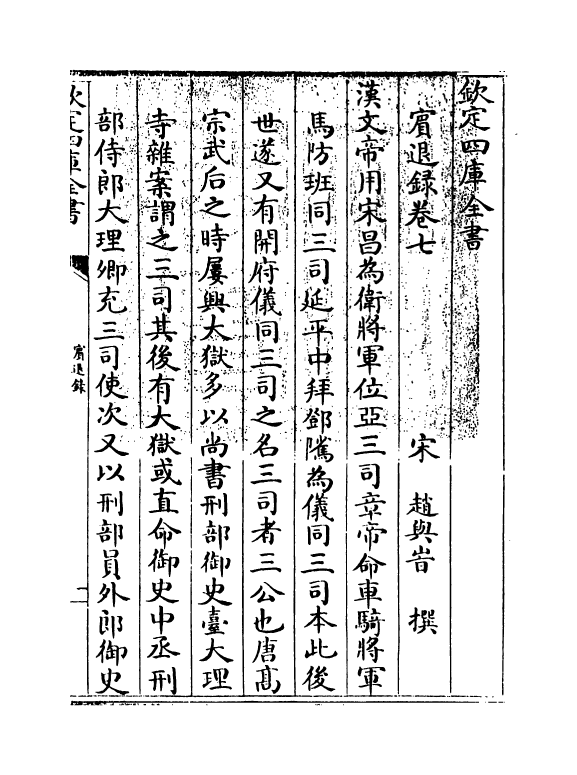 欽定四庫全書
賓退錄卷七
宋 趙與旹 撰
漢文帝用宋昌為衛將軍位亞三司章帝命車騎將軍
馬防班同三司延平中拜鄧隲為儀同三司本此後
世遂又有開府儀同三司之名三司者三公也唐髙
宗武后之時屢興大獄多以尚書刑部御史臺大理
寺雜案謂之三司其後有大獄或直命御史中丞刑
部侍郎大理卿充三司使次又以刑部員外郎御史
欽定四庫全書
賓退錄